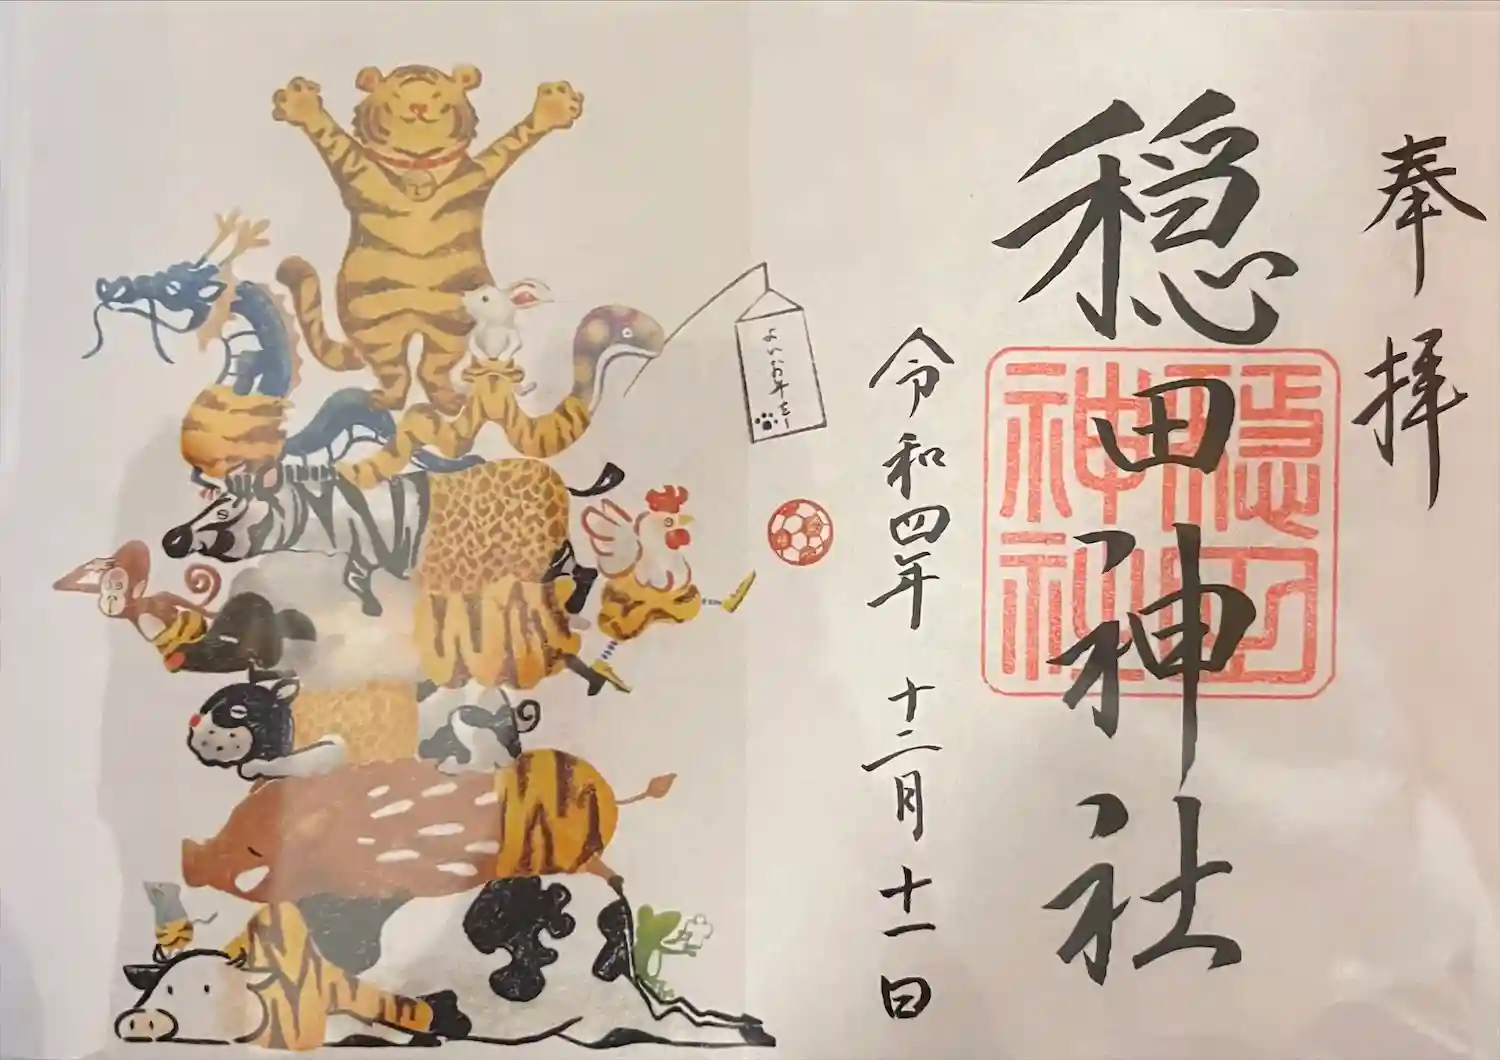 奉拝
穏田神社
穏田
神社
令和四年 十二月 十一日
よいお年を